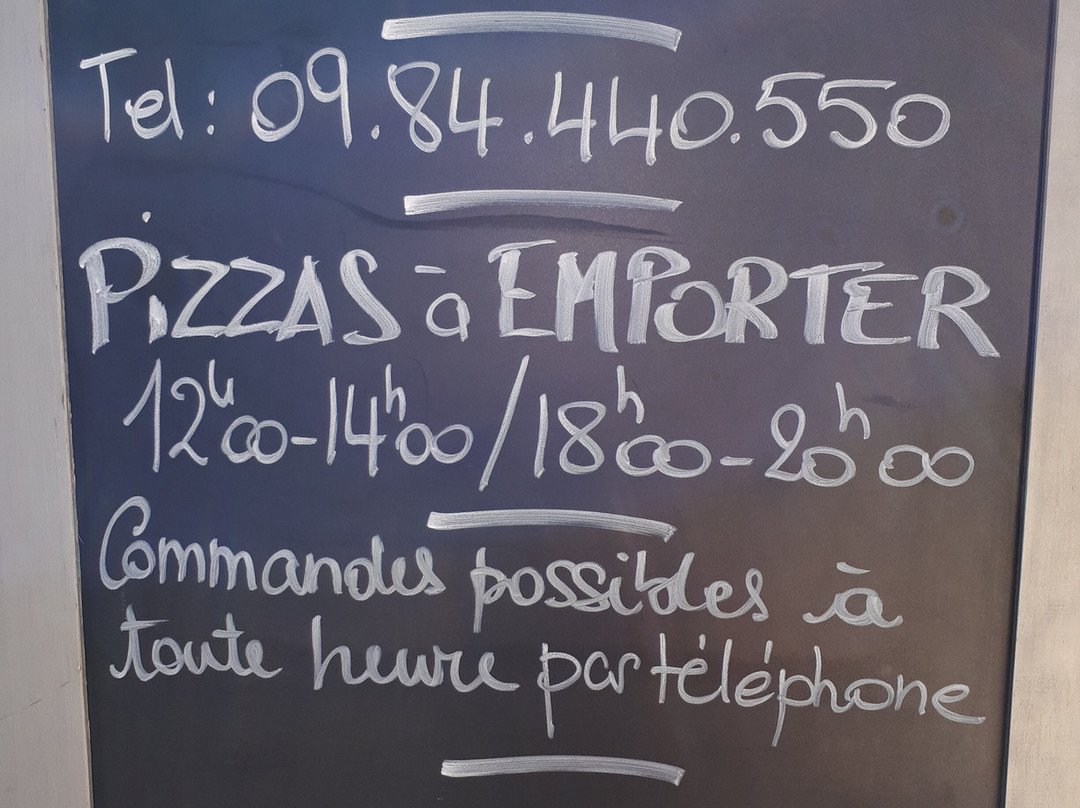 Tel: 09.84.440.550
PiZZAS à EMPORTER
12h00-14h00/18h00-20h00
Commandes possibles à
toute heure par téléphone